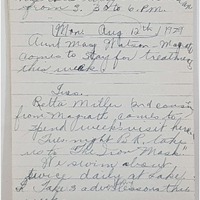 from 2.30 to 6 P.M.
Mon. Aug 12th, 1929
Aunt May Watson - Magrath
comes to stay for treatment
this week.
Tues.
Retta Miller 2nd cousin
from Magrath comes to
spend 1 week visit here.
Tues night B.R. take
us to "The Iron Mask"
We swim about
twice daily at Lake.
I take 3 adv lessons this